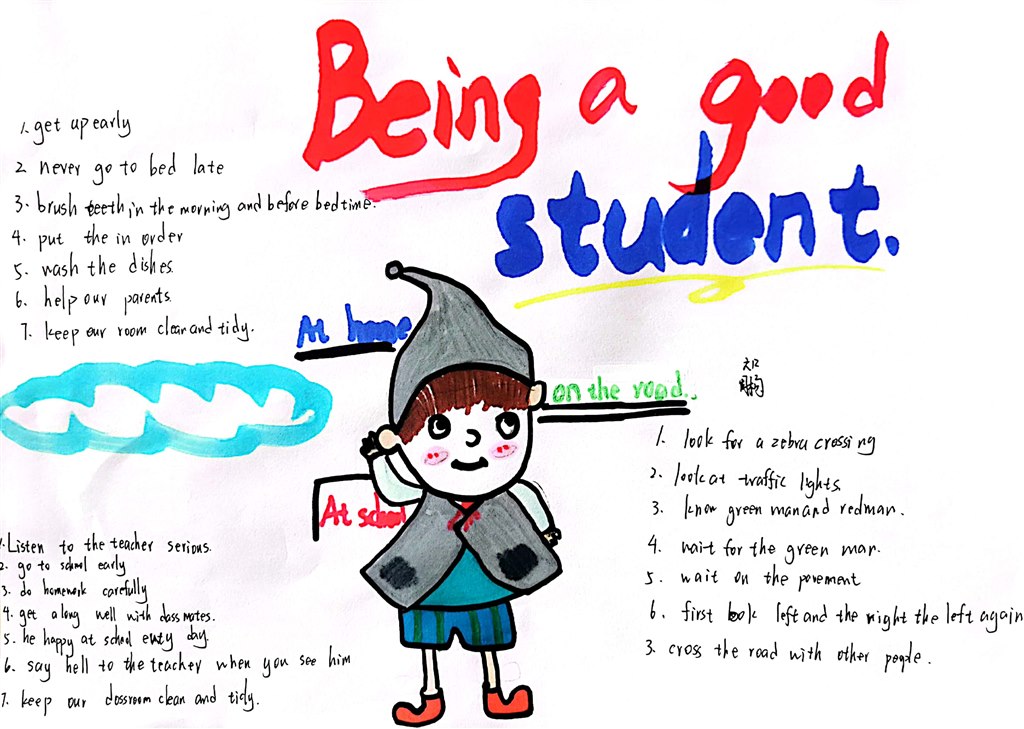 Being a good
student.
1. get up early
2. never go to bed late
3. brush teeth in the morning and before bedtime.
4. put the in order
5. wash the dishes.
6. help our parents.
7. keep our room clean and tidy.
At home
on the road..
1. look for a zebra crossing
2. look at traffic lights.
3. know green man and redman.
4. wait for the green man.
5. wait on the pavement
6. first look left and the right the left again
3. cross the road with other people.
At school
1. Listen to the teacher serious.
2. go to school early
3. do homework carefully
4. get along well with classmates.
5. he happy at school every day.
6. say hell to the teacher when you see him
7. keep our classroom clean and tidy.